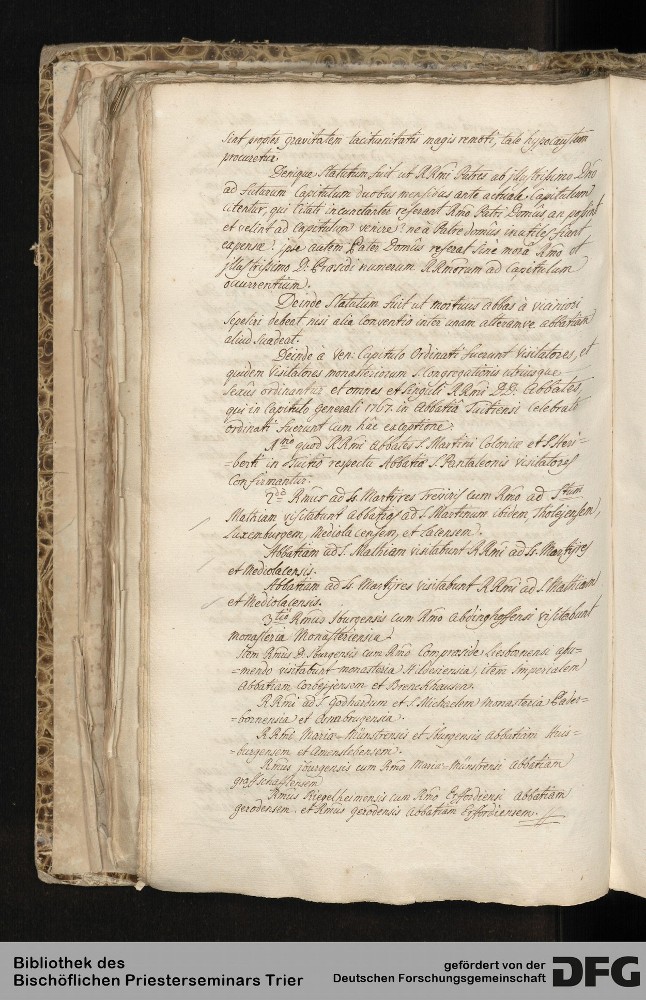 sint propter gravitatem taciturnitatis magis remoti, tale hypocaustum
procuretur.
Denique Statutum fuit ut RRmi Patres ab illustrissimo Dno
ad futurum Capitulum duobus mensibus ante actuale Capitulum
citentur, qui citati incunctanter referant Rmo Patri Domûs an possint
et velint ad capitulum venire? ne à Patre domûs inutiles fiant
expensæ: ipse autem Pater Domûs referat sine morâ Rmo et
illustrissimo D: Præsidi numerum RRmorum ad Capitulum
occurrentium.
Deinde Statutum fuit ut mortuus abbas à viciniori
sepeliri debeat, nisi alia conventio inter unam alteramve abbatiam
aliud suadeat.
Deinde à Ven: Capitulo Ordinati fuerunt visitatores, et
quidem visitatores monasteriorum S. Congregationis utriusque
Sexûs ordinantur et omnes et singuli RRmi DD: Abbates,
qui in Capitulo generali 1767. in Abbatiâ Tuitiensi celebrato
ordinati fuerunt cum hâc exceptione.
1mo quod RRmi Abbates S. Martini Coloniæ et S. Heri=
=berti in Tuitio respectu Abbatiæ S. Pantaleonis visitatores
confirmantur.
2dò Rmus ad SS. Martyres Treviris cum Rmo ad Stum
Mathiam visitabunt abbatias ad S. Martinum ibidem, Tholejensem,
Luxemburgem, Mediolacensem, et Lacensem.
Abbatiam ad S. Mathiam visitabunt RRmi ad SS. Martyres
et Mediolacensis.
Abbatiam ad SS. Martyres visitabunt RRmi ad S. Mathiam
et Mediolacensis.
3tiò Rmus Iburgensis cum Rmo Abdinghoffensi visitabunt
monasteria Monasteriensia.
Item Rmus D. Iburgensis cum Rmo Compræside Liesbornensi assu=
=mendo visitabunt monasteria Hildesiensia, item Imperialem
Abbatiam Corbejensem et Brenckhausen.
RRmi ad S. Godhardum et S. Michaelem monasteria Pader=
=bornensia et Osnabrugensia.
RRmi Mariæ-Münstrensis et Iburgensis Abbatiam Huis=
=burgensem et Amenslebensem.
Rmus Iburgensis cum Rmo Mariæ-Münstrensi Abbatiam
graffschafftensem
Rmus Ringelheimensis cum Rmo Erffordiensi abbatiam
gerodensem. et Rmus gerodensis Abbatiam Erffordiensem.
Bibliothek des
Bischöflichen Priesterseminars Trier
gefördert von der
Deutschen Forschungsgemeinschaft
DFG